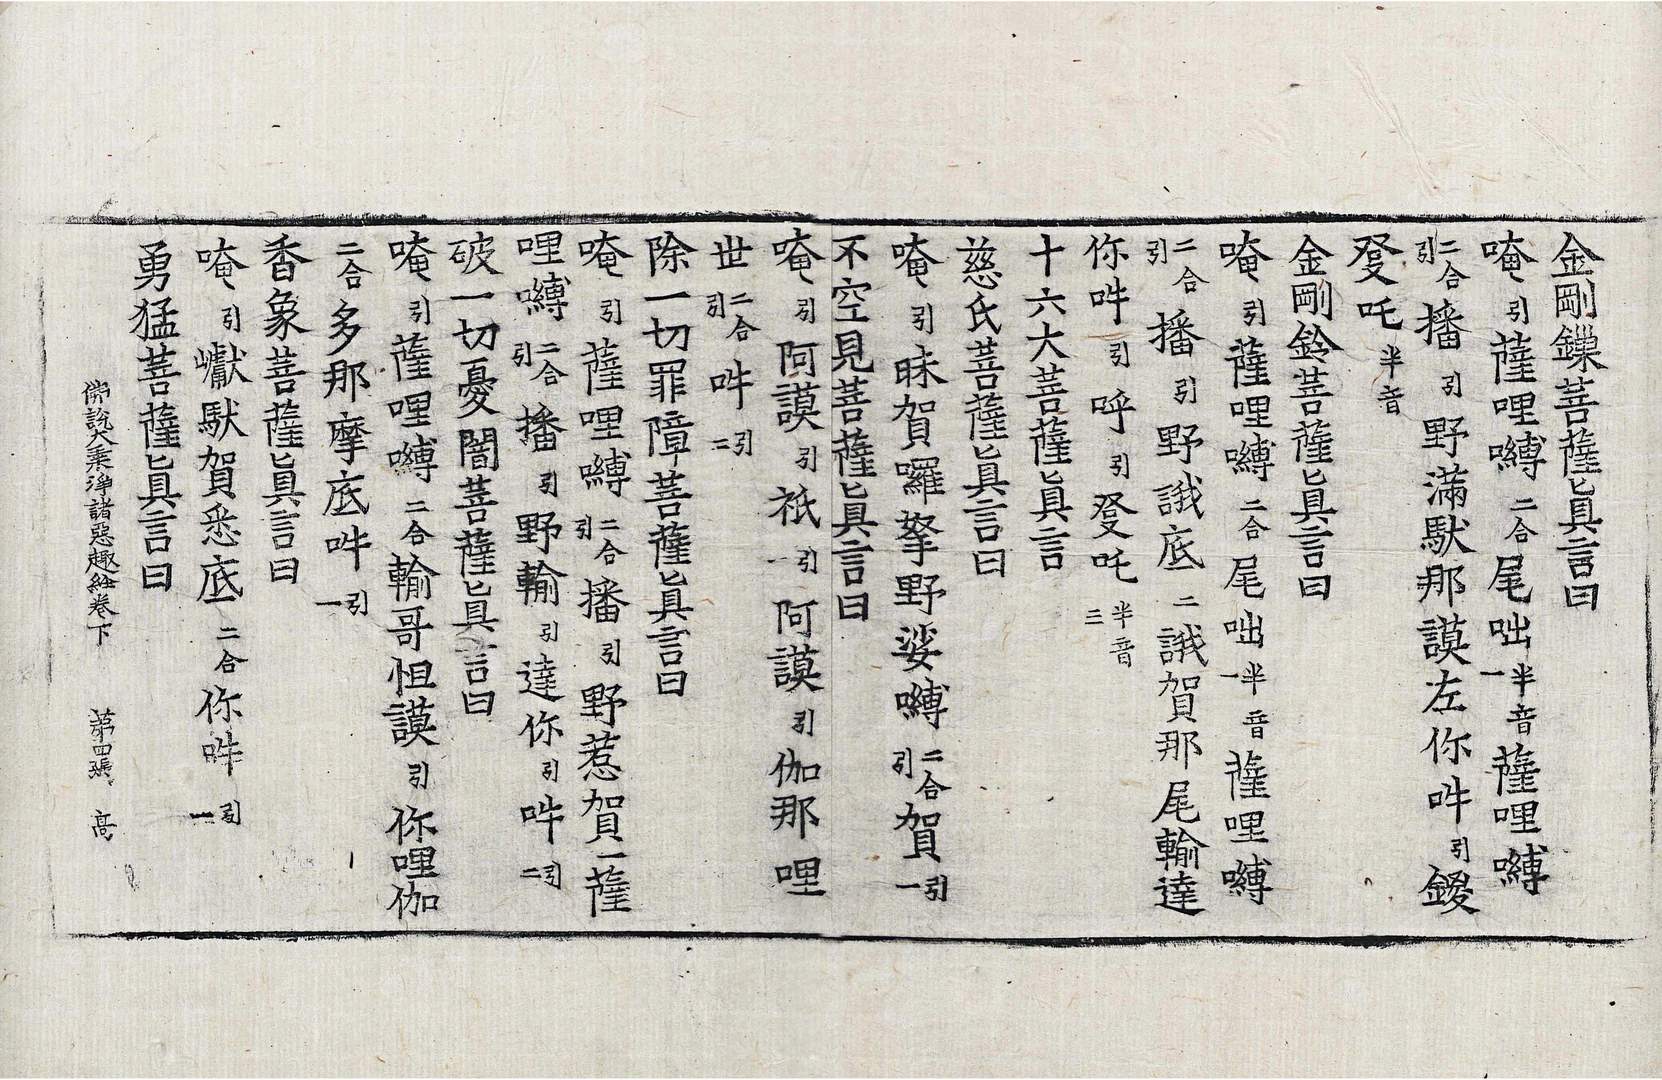 金剛鏁菩薩眞言曰
唵引薩哩嚩二合尾咄半音一薩哩嚩
二合引播引野滿馱那謨左你吽引鍐
發吒半音
金剛鈴菩薩眞言曰
唵引薩哩嚩二合尾咄半音一薩哩嚩
二合引播引野誐底二誐賀那尾輸達
你吽引呼引發吒半音三
十六大菩薩眞言
慈氏菩薩眞言曰
唵引昧賀囉拏野娑嚩二合引賀引一
不空見菩薩眞言曰
唵引阿謨引祇引一阿謨引伽那哩
世二合引吽引二
除一切罪障菩薩眞言曰
唵引薩哩嚩二合引播引野惹賀一薩
哩嚩二合引播引野輸引達你引吽引二
破一切憂闇菩薩眞言曰
唵引薩哩嚩二合輸哥怛謨引你哩伽
二合多那摩底吽引一
香象菩薩眞言曰
唵引巘馱賀悉底二合你吽引一
勇猛菩薩眞言曰
佛說大乘淨諸惡趣經卷下 第四張 高